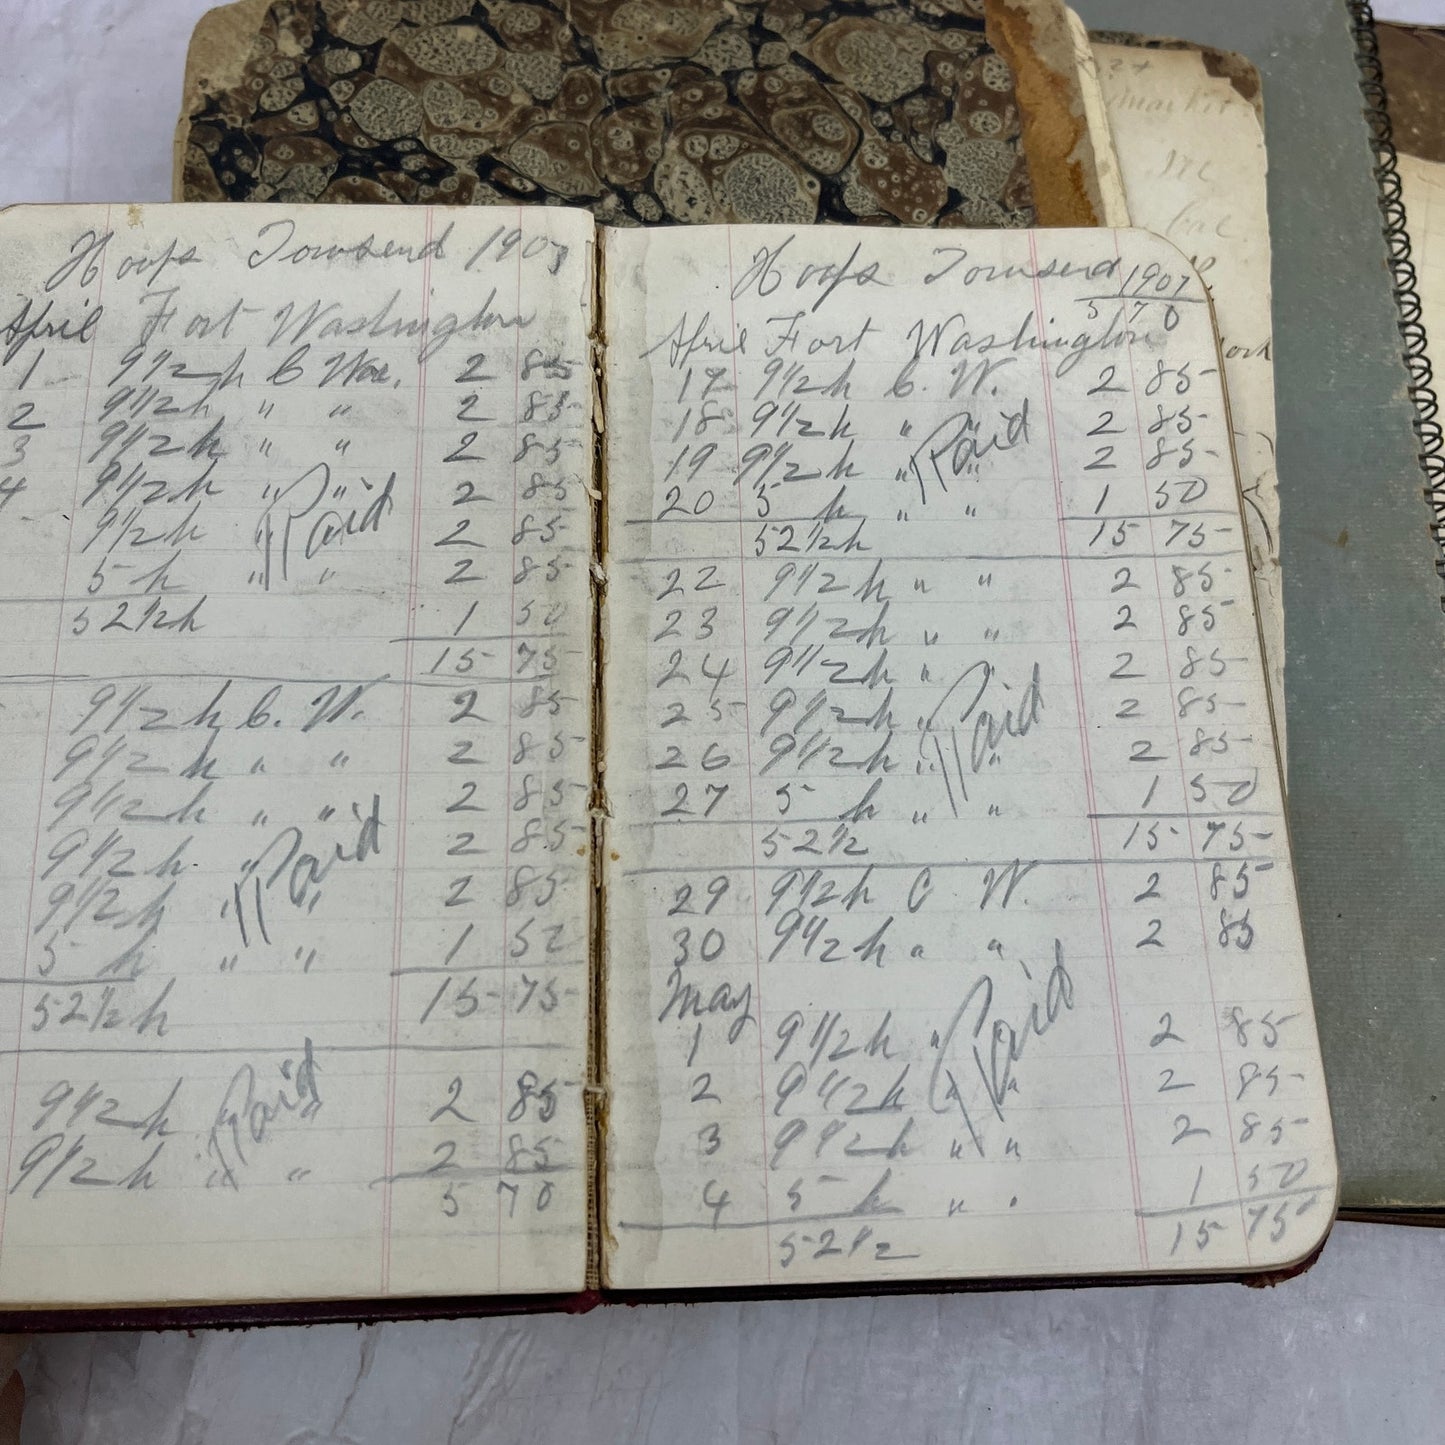 Hoofs Townsend 1907
April Fort Washington
1 9 1/2 h C Wac. 2 85
2 9 1/2 h " " 2 85
3 9 1/2 h " " 2 85
4 9 1/2 h " " 2 85
9 1/2 h " " 2 85
Paid
5 h " " 2 85
52 1/2 h 1 50
15 75
9 1/2 h C. W. 2 85
9 1/2 h " " 2 85
9 1/2 h " " 2 85
9 1/2 h " 2 85
Paid
9 1/2 h " " 2 85
5 h " " 1 50
52 1/2 h 15 75
9 1/2 h " 2 85
Paid
9 1/2 h " " 2 85
5 70
Hoofs Townsend 1907
5 70
April Fort Washington
17 9 1/2 h C. W. 2 85
18 9 1/2 h " " 2 85
Paid
19 9 1/2 h " " 2 85
20 5 h " " 1 50
52 1/2 h 15 75
22 9 1/2 h " " 2 85
23 9 1/2 h " " 2 85
24 9 1/2 h " " 2 85
25 9 1/2 h " 2 85
Paid
26 9 1/2 h " " 2 85
27 5 h " " 1 50
52 1/2 15 75
29 9 1/2 h C W. 2 85
30 9 1/2 h " " 2 85
May
1 9 1/2 h " 2 85
Paid
2 9 1/2 h " " 2 85
3 9 1/2 h " " 2 85
4 5 h " " 1 50
52 1/2 15 75